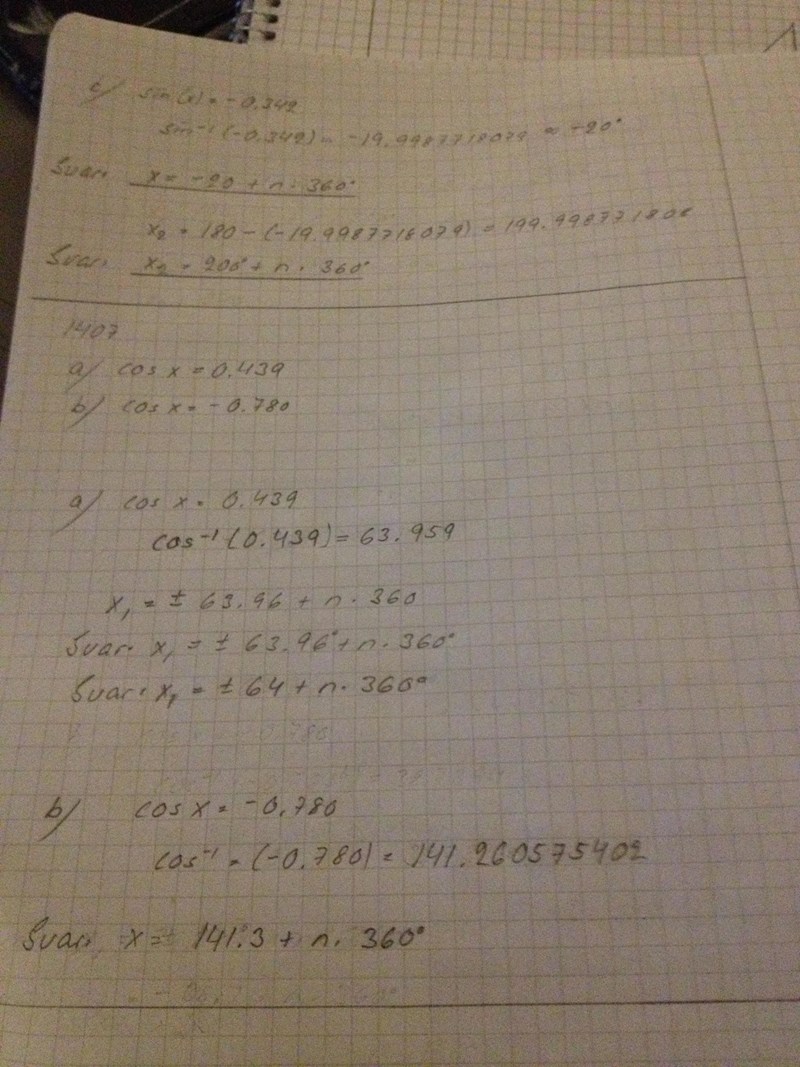 c) sin(x) = -0.342
sin⁻¹(-0.342) = -19.9987718079 ≈ -20°
Svar: x = -20 + n. 360°
x₂ = 180 - (-19.9987718079) = 199.998771808
Svar: x₂ = 200° + n. 360°
1407
a) cos x = 0.439
b) cos x = -0.780
a) cos x = 0.439
cos⁻¹(0.439) = 63.959
x₁ = ± 63.96 + n. 360
Svar: x₁ = ± 63.96° + n. 360°
Svar: x₁ = ± 64 + n. 360°
b) cos x = -0,780
cos⁻¹ = (-0.780) = 141.260575402
Svar: x = ± 141.3 + n. 360°